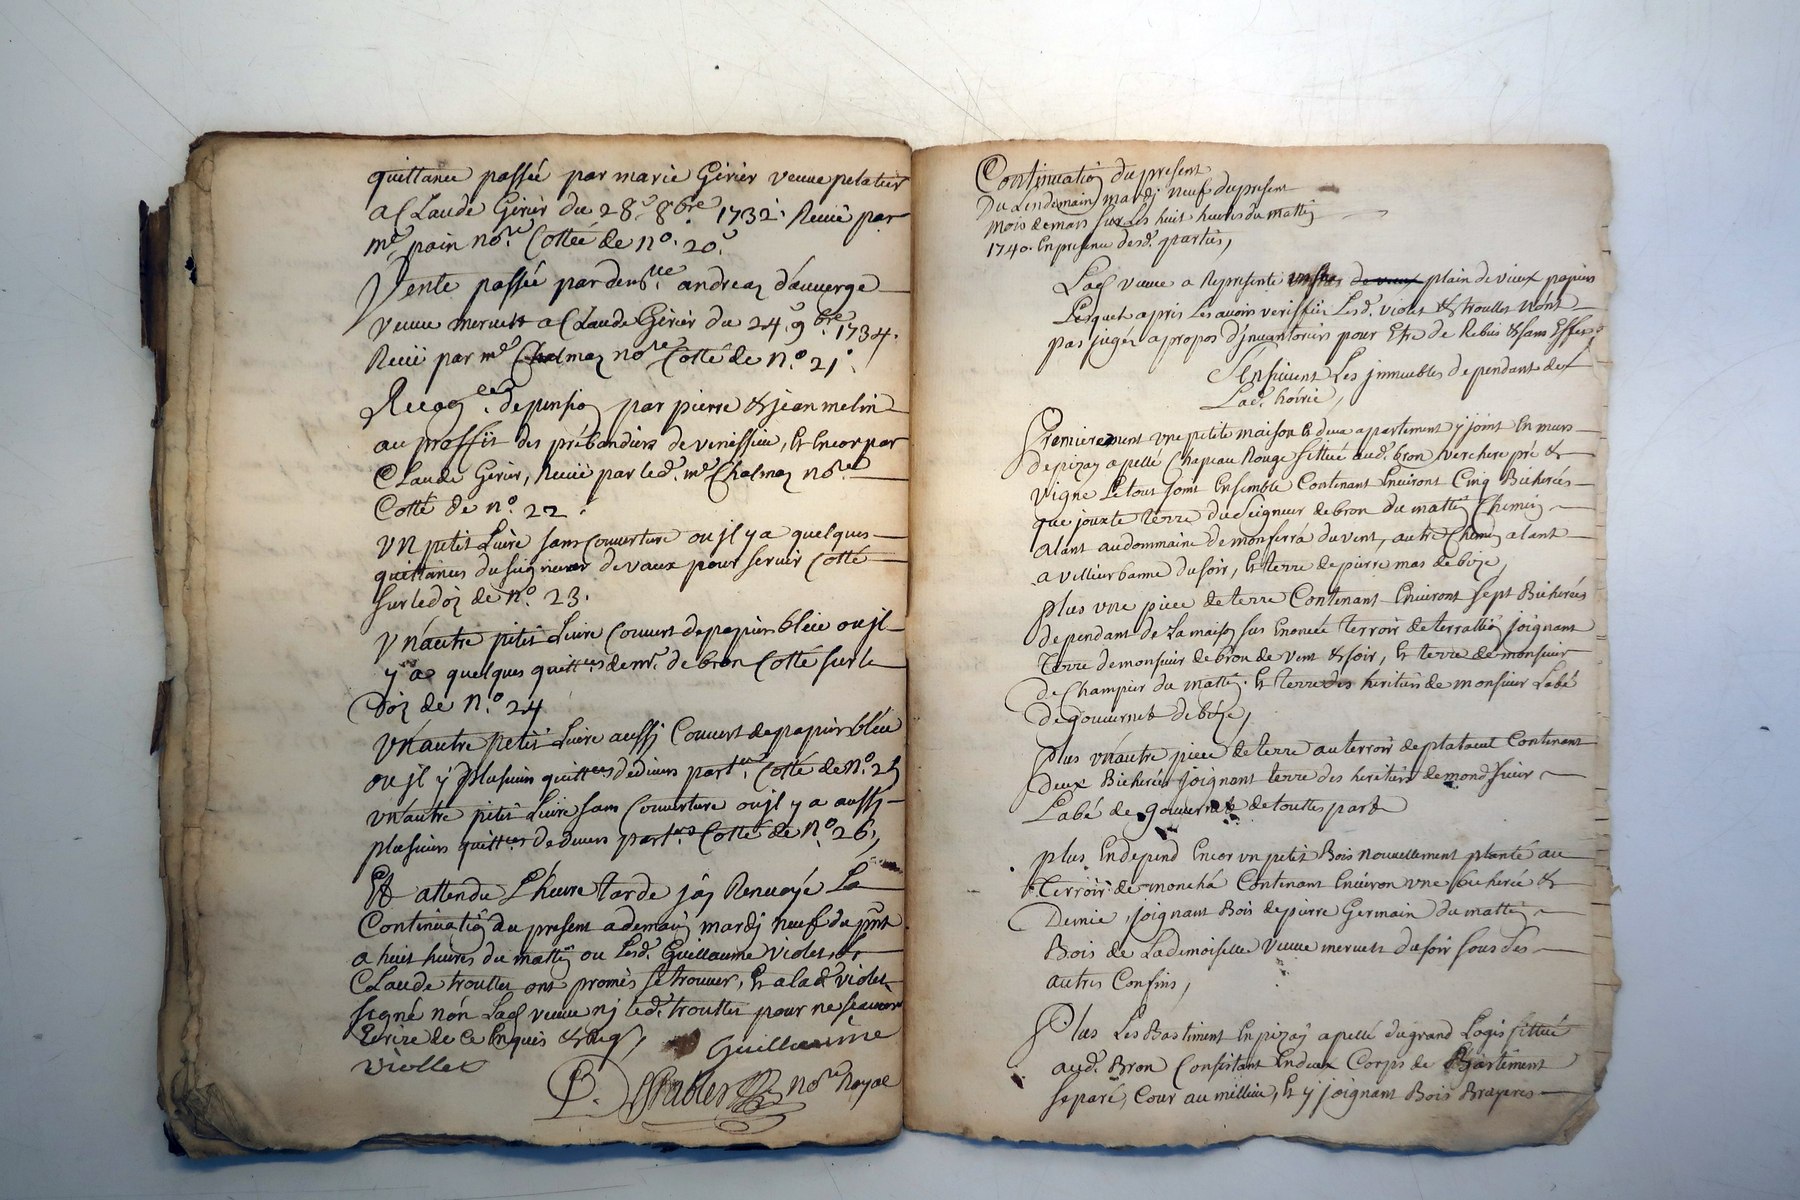 quittance passée par marie Girier veuve pelatier
a Claude Girier du 28e 8bre 1732. Receüe par
me pain nore Cottée de no. 20.
Vente passée par demlle andreaz d'auverge
veuve meruet a Claude Girier du 24e 9bre 1734.
Receü par me Chalmaz nore Cotté de no. 21.
de pension par pierre & jean melin
au proffit des prébandiers de venissieu, Et Encor par
Claude Girier, Receüe par led. me Chalmaz nore
Cotté de no. 22.
Un petit Livre sans Couverture ou jl y a quelques
quittances du seigneur de vaux pour servir Cotté
sur le doz de no. 23.
Un autre petit Livre Couvert de papier bleü ou jl
y a quelques quittces de mr. de bron Cotté sur le
Doz de no. 24
Un autre petit Livre aussj Couvert de papier bleü
ou jl y plusieurs quittces de divers partrs. Cotté de no. 25
Un autre petit Livre sans Couverture ou jl y a aussj
plusieurs quittces de divers partrs. Cotté de no. 26,
Et attendu L'heure tarde jaj Renvoyé La
Continuation du present a demain mardj neuf du pnt
a huit heures du mattin ou Lesd. Guillaume violet &
Claude trouller ont promis se trouver, Et a lad. violet
signé nón Lad. veuve nj led. trouller pour ne sçavoir
Ecrire de ce Enquis & Req,
Guillaume
Viollet
P. nore Royal
Continuation du present
Du Lendemain mardj neuf du present
mois de mars sur Les huit heures du mattin
1740. En presence desd. parties,
Lad. veuve a Representé de vieux plain de vieux papiers
Lesquels apris Les avoir veriffiés Lesd. violet & trouller N'ont
pas jugéz apropos d'jnvantorier pour Etre de Rebus & sans Effet
S'Ensuivent Les jmmeubles dependant de
Lad. hoirie,
Premierement Une petite maison Et deux apartement y joint En murs
de pizay apellé Chapeau Rouge sittué aud. bron verchere pré &
vigne Le tout joint Ensemble Contenant Environt Cinq Bicherées
que jouxte terre du Seigneur de bron du mattin Chemin
alant au dommaine de monferrá du vent, autre Chemin alant
a villieurbanne du soir, Et terre de pierre mas de bize,
Plus Une piece de terre Contenant Environt sept Bicherées
dependant de La maison sus Enoncée terroir de terraillion joignant
terre de monsieur de bron de vent & soir, Et terre de monsieur
de Champier du mattin. Et terre des heritiers de monsieur Labé
de gouvernet de bize,
Plus Un autre piece de terre au terroir de platacul Contenant
deux Bicherées joignant terre des heritiers de mond. sieur
Labé de gouvernet de toutes parts
plus En depend Encor un petit Bois nouvellement planté au
terroir de monchá Contenant Environ une Bicherée &
Demie joignant Bois de pierre Germain du mattin
Bois de Lademoiselle veuve meruet du soir sous ses
autres Confins,
Plus Les Bastiment En pizay apellé du grand Logis sittué
aud. Bron Consistant En deux Corps de Batiment
separé, Cour au millieu, Et y joignant Bois Brayeres